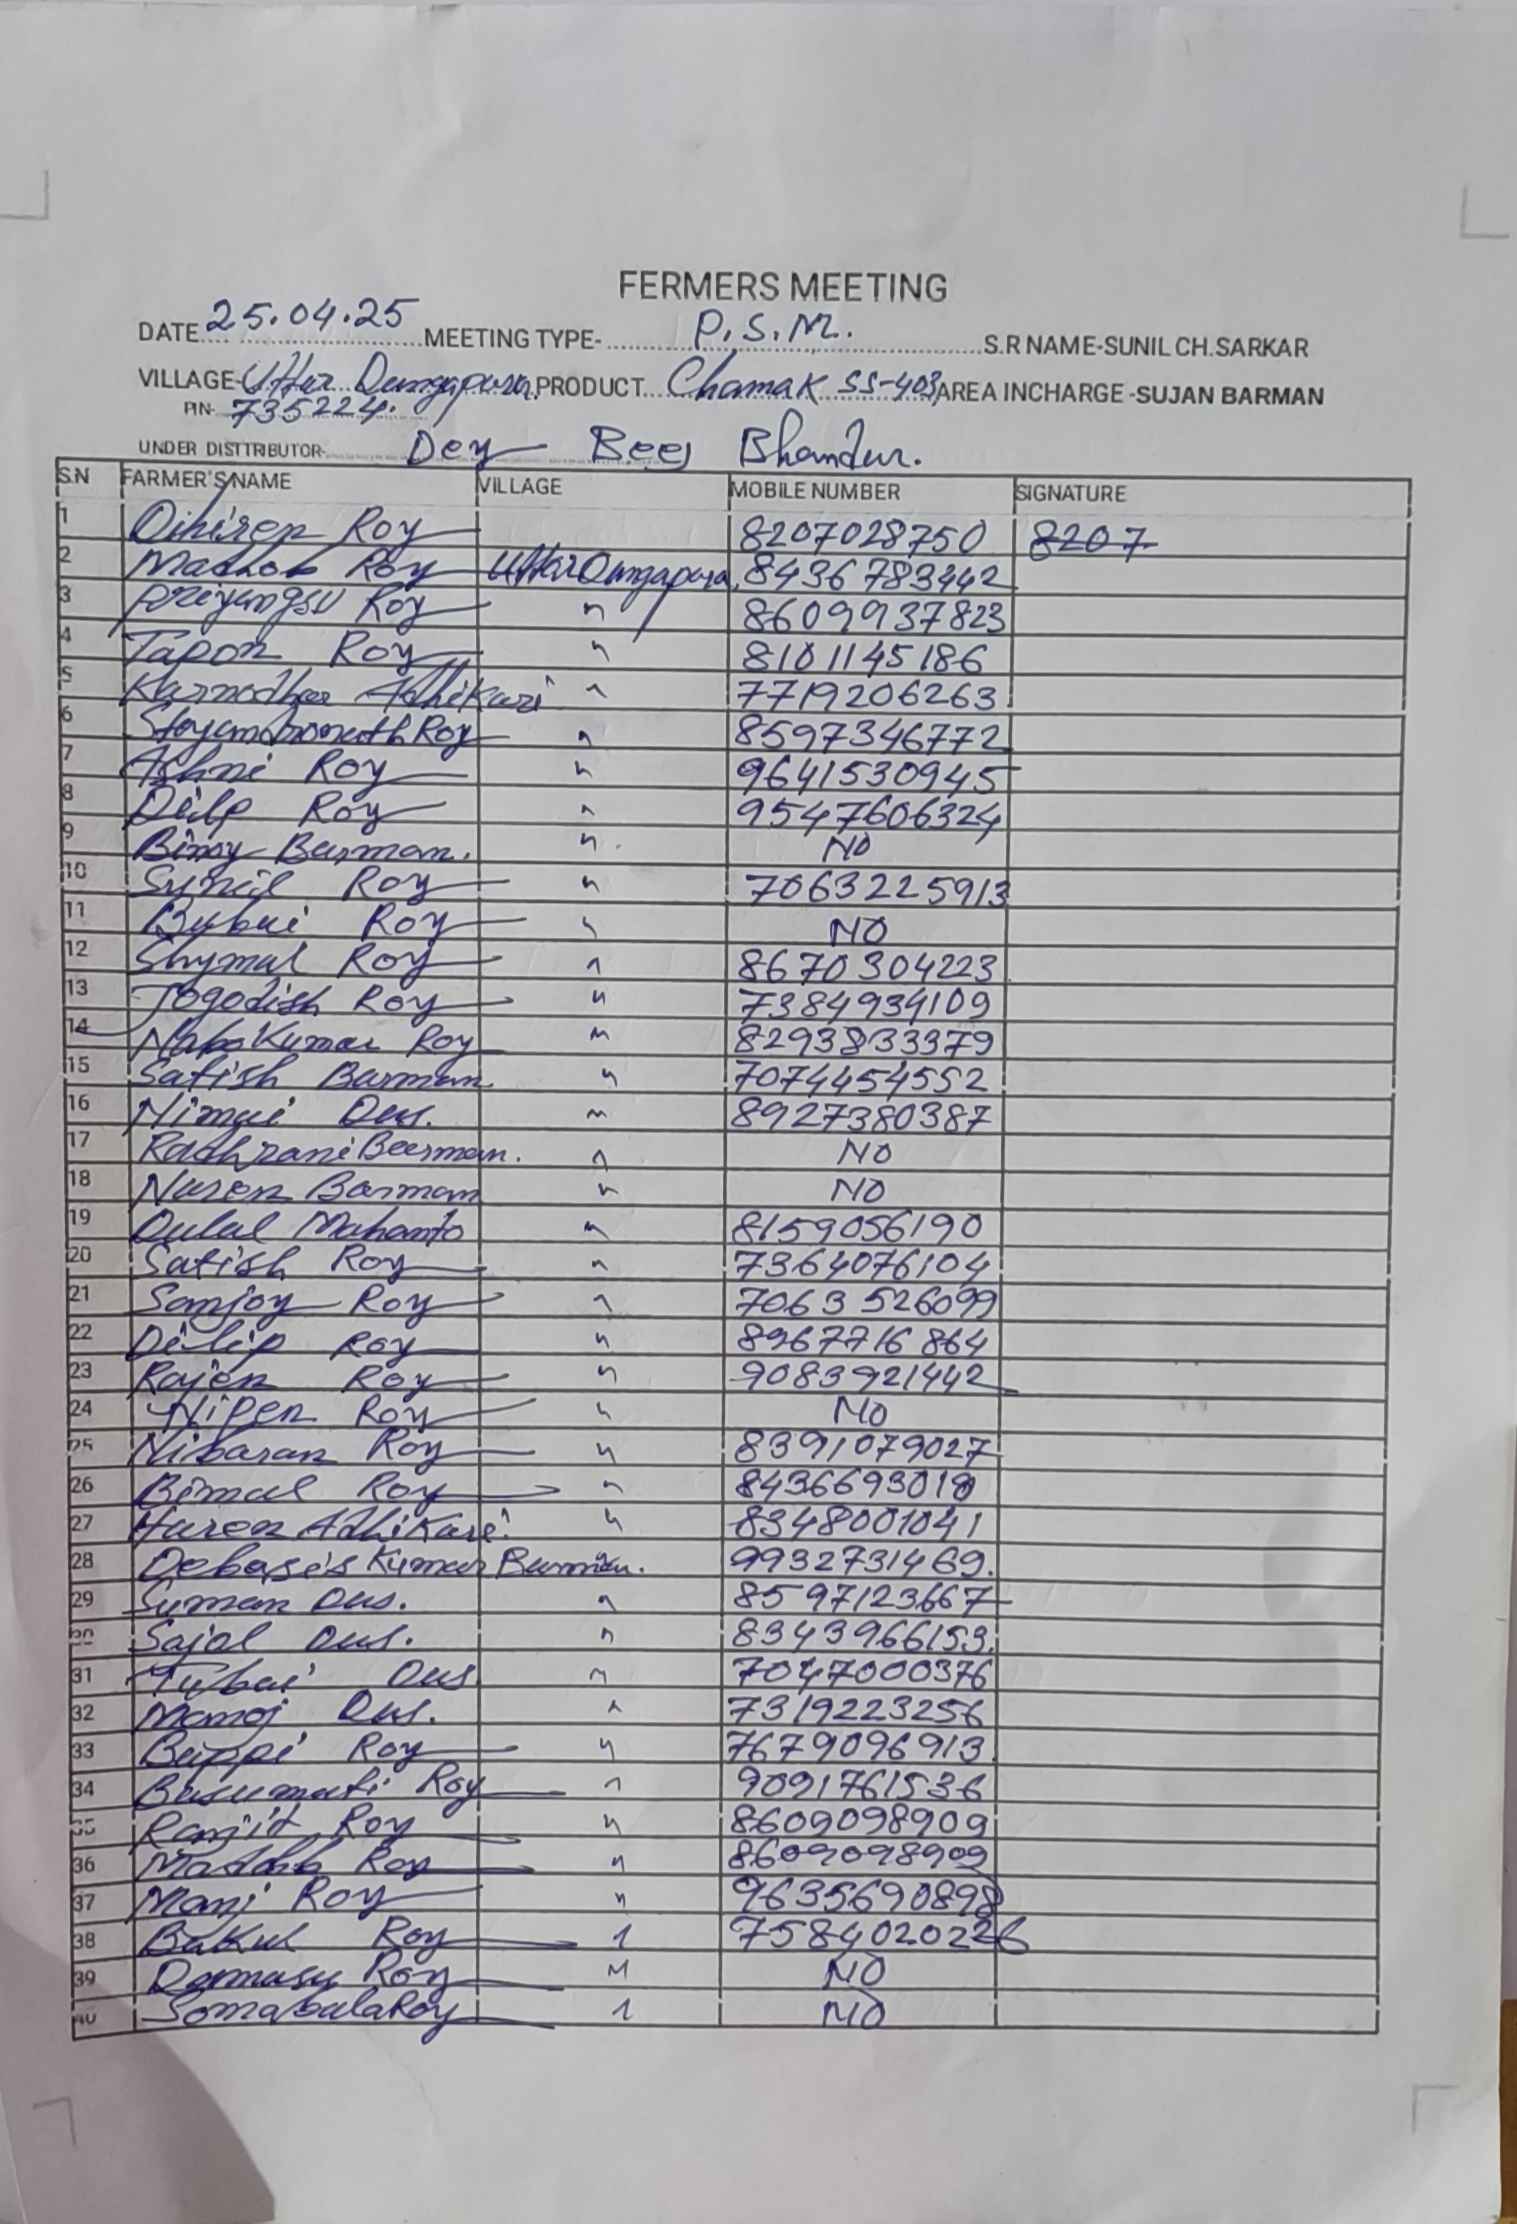 FERMERS MEETING
DATE 25.04.25 MEETING TYPE- P.S.M. S.R NAME-SUNIL CH.SARKAR
VILLAGE- Uttar Dangapara, PRODUCT Chamak SS-403 AREA INCHARGE -SUJAN BARMAN
PIN- 735224.
UNDER DISTTRIBUTOR- Dey Beej Bhandar.
S.N FARMER'S NAME VILLAGE MOBILE NUMBER SIGNATURE
1 Roy 8207028750 8207
2 Madhob Roy Uttar Dangapara. 8436783442
3 Priyangsu Roy " 8609937823
4 Tapon Roy " 8101145186
5 Adhikari " 7719206263
6 Roy " 8597346772
7 Ashni Roy " 9641530945
8 Dilp Roy " 9547606324
9 Binoy Barman. " NO
10 Sunil Roy " 7063225913
11 Bubai Roy " NO
12 Shymal Roy " 8670304223
13 Jogodish Roy " 7384934109
14 Naba Kumar Roy " 8293833379
15 Satish Barman " 7074454552
16 Nimai Das. " 8927380387
17 Radhrani Barman. " NO
18 Naren Barman " NO
19 Dulal Mahanto " 8159056190
20 Satish Roy " 7364076104
21 Sanjoy Roy " 7063526099
22 Dilip Roy " 8967716864
23 Rajen Roy " 9083921442
24 Nipen Roy " NO
25 Nibaran Roy " 8391079027
26 Bimal Roy " 8436693018
27 Haren Adhikari " 8348001041
28 Debasis Kumar Barman. 9932731469.
29 Suman Das. " 8597123667
30 Sajal Das. " 8343966153.
31 Tubai Das " 7047000376
32 Manoj Das. " 7319223256
33 Bappi Roy " 7679096913
34 Basumati Roy " 9091761536
35 Ranjit Roy " 8609098909
36 Madhab Roy " 8609098909
37 Mani Roy " 9635690898
38 Bakul Roy " 7584020226
39 Roy " NO
40 Somabala Roy " NO